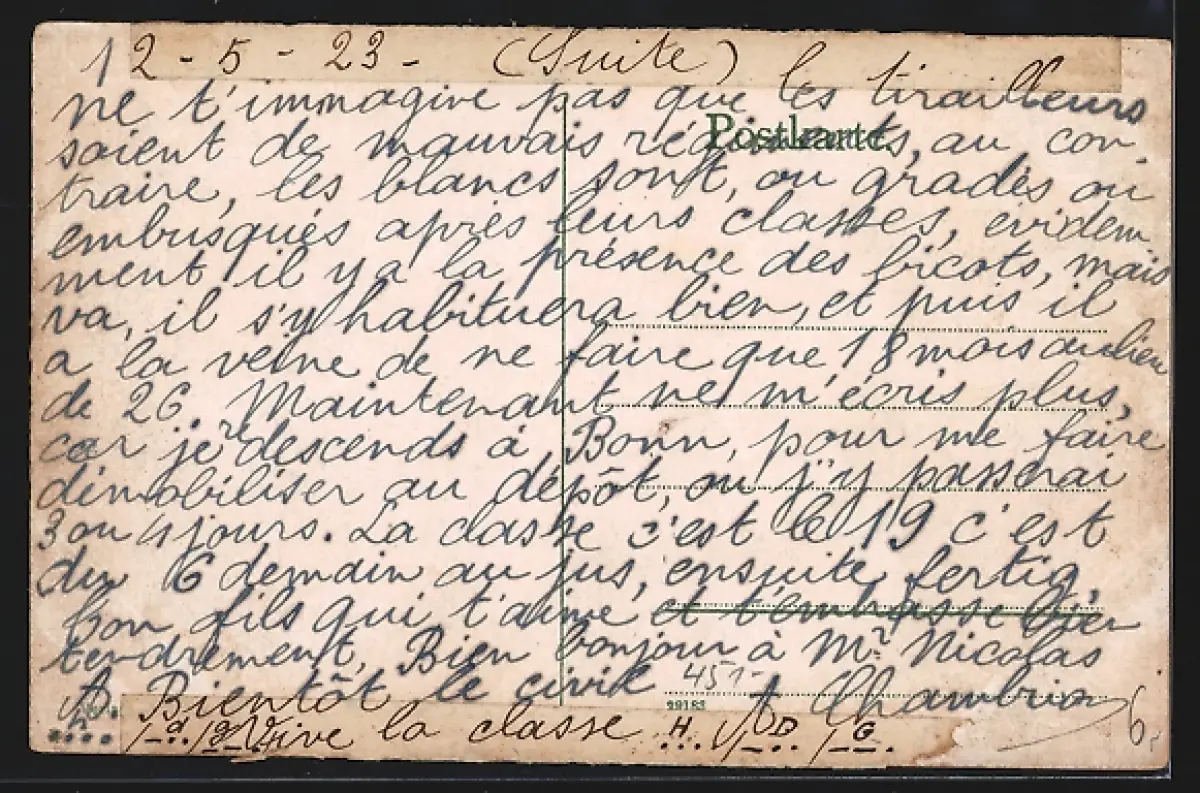 12-5-23- (Suite)
ne t'immagive pas que les tirailleurs
Postkarte.
soient de mauvais régiments, au con-
traire, les blancs sont, ou gradés ou
embusqués après leurs classes, évidem-
ment il y a la présence des bicots, mais
va, il s'y habituera bien, et puis il
a la veine de ne faire que 18 mois au lieu
de 26. Maintenant ne m'écris plus,
car je descends à Bonn, pour me faire
démobiliser au dépôt, ou j'y passerai
3 ou 4 jours. La classe c'est le 19 c'est
du 6 demain au jus, ensuite fertig,
bon fils qui t'aime et t'embrasse bien
tendrement, Bien bonjour à Mr. Nicolas
Bientôt le civil 451-
29183
Vive la classe